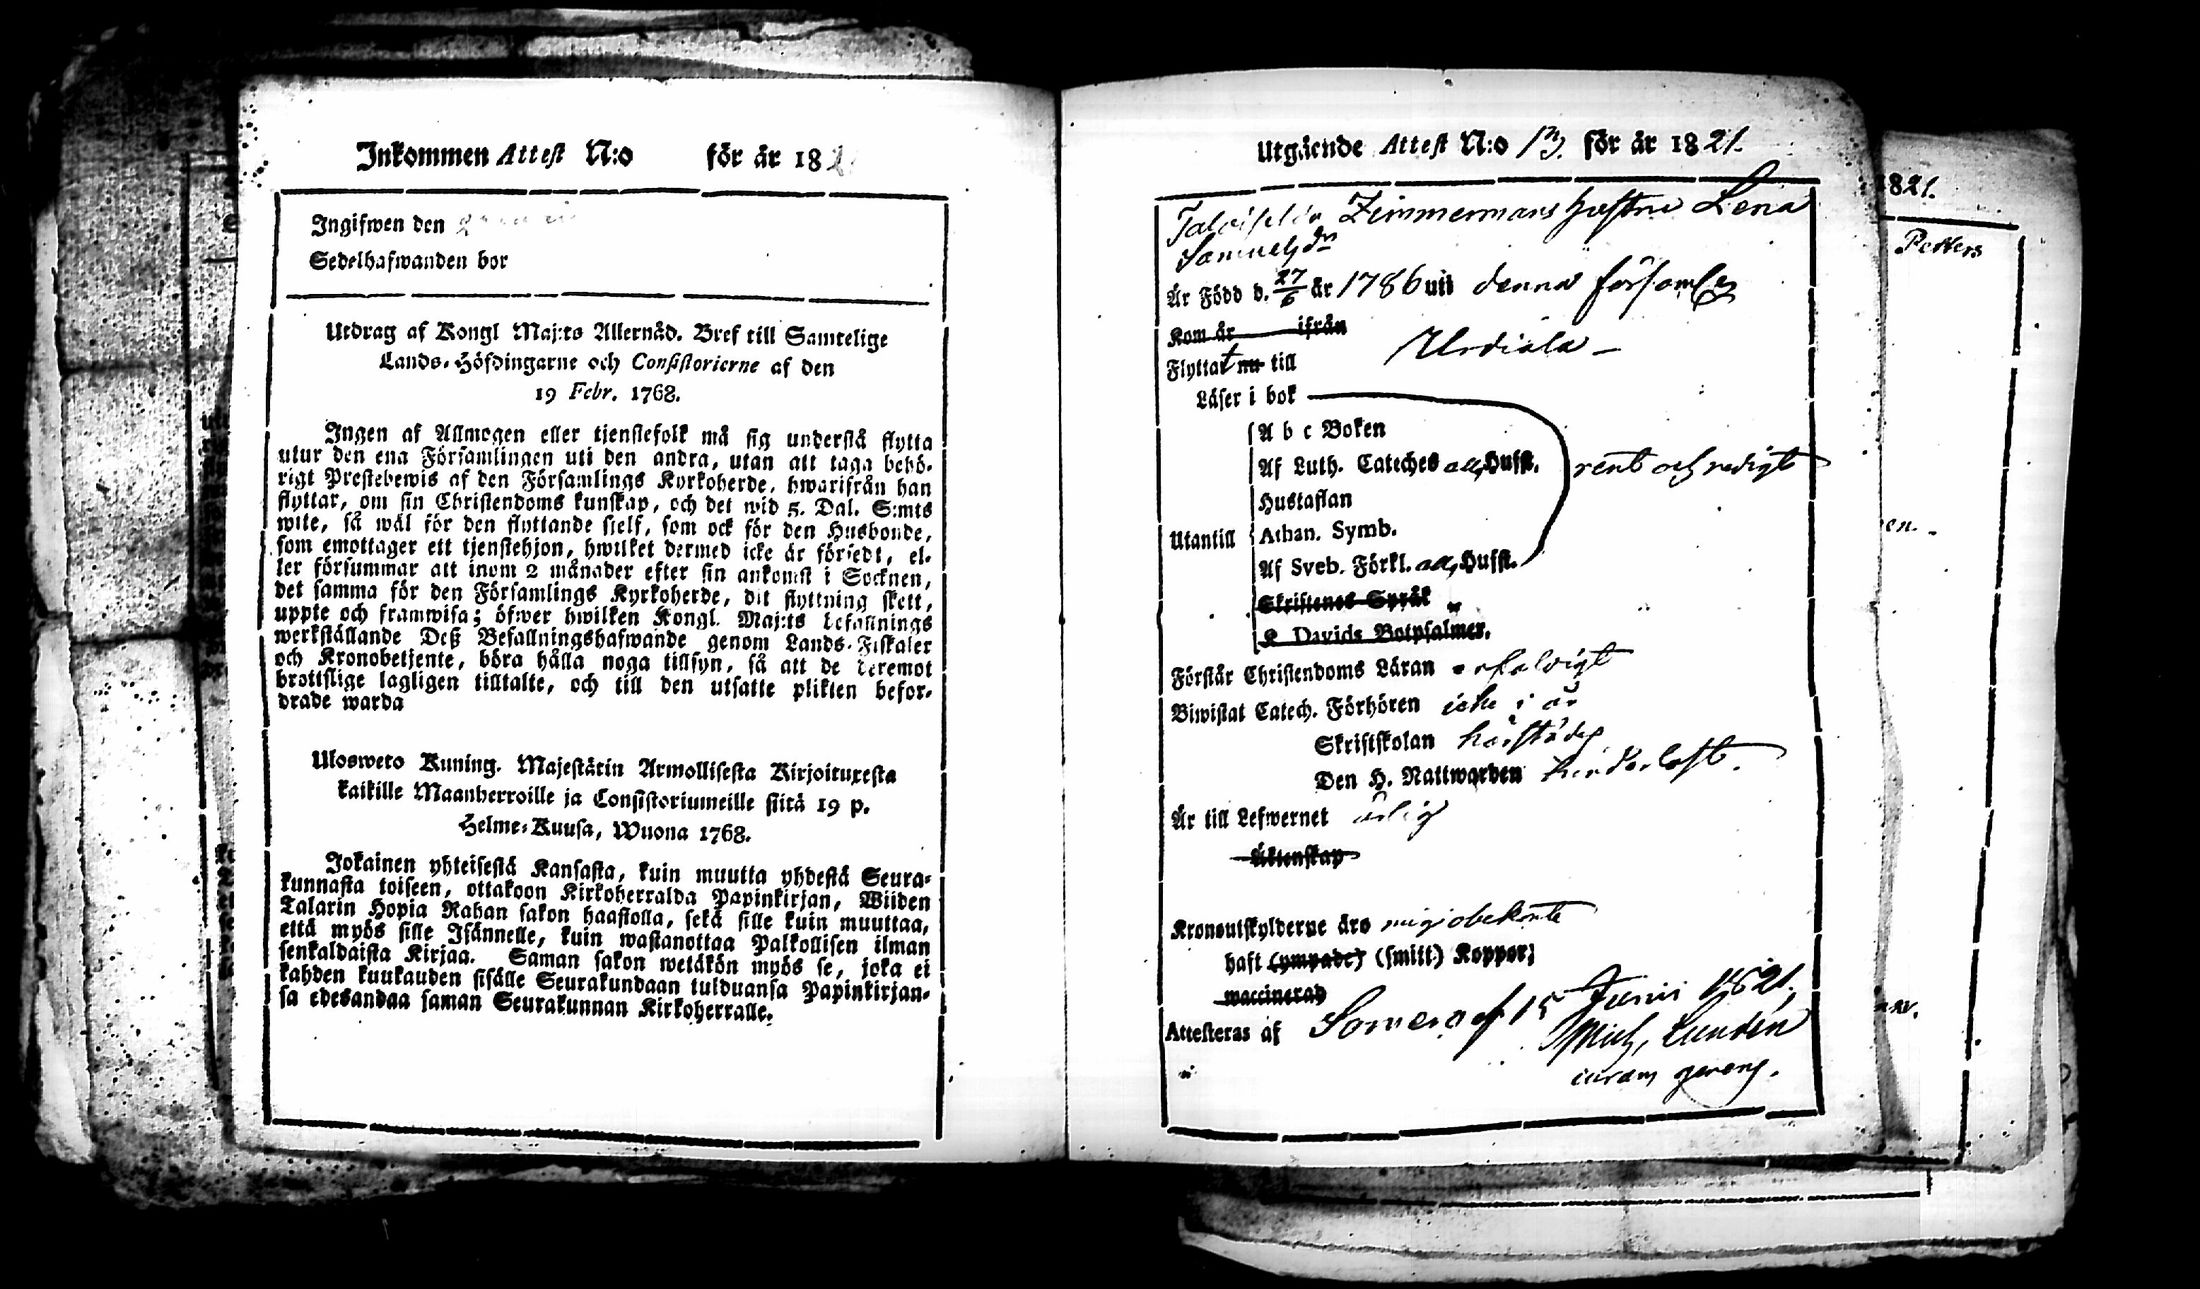 Inkommen Attest N:o för år 182
Ingifwen den
Sedelhafwanden bor
Utdrag af Kongl Maj:ts Allernåd. Bref till Samtelige
Lands-Höfdingarne och Consistorierne af den
19 Febr. 1768.
Ingen af Allmogen eller tjenstefolk må sig understå flytta
utur den ena Församlingen uti den andra, utan att taga behö-
rigt Prestebewis af den Församlings Kyrkoherde, hwarifrån han
flyttar, om sin Christendoms kunskap, och det wid 5. Dal. S:mts
wite, så wäl för den flyttande sielf, som ock för den Husbonde,
som emottager ett tjenstehjon, hwilket dermed icke är försedt, el-
ler försummar att inom 2 månader efter sin ankomst i Socknen,
det samma för den Församlings Kyrkoherde, dit flyttning skett,
uppte och framwisa; öfwer hwilken Kongl. Maj:ts befallnings
werkställande Deß Befallningshafwande genom Lands-Fiskaler
och Kronobetjente, böra hålla noga tillsyn, så att de deremot
brottslige lagligen tilltalte, och till den utsatte plikten befor-
drade warda
Ulosweto Kuning. Majestätin Armollisesta Kirjoituxesta
kaikille Maanherroille ja Consistoriumeille siitä 19 p.
Helme-Kuusa, Wuona 1768.
Jokainen yhteisestä Kansasta, kuin muutta yhdestä Seura-
kunnasta toiseen, ottakoon Kirkoherralda Papinkirjan, Wiiden
Talarin Hopia Rahan sakon haastolla, sekä sille kuin muuttaa,
että myös sille Isännelle, kuin wastanottaa Palkollisen ilman
senkaldaista Kirjaa. Saman sakon wetäkön myös se, joka ei
kahden kuukauden sisälle Seurakundaan tulduansa Papinkirjan-
sa edesandaa saman Seurakunnan Kirkoherralle.
Utgående Attest N:o 13. för år 1821.
Zimmermans hustru Lena
Samuelsdr
Är Född d. 27/6 år 1786 uti denna församlg
Kom år ifrån
Flyttat nu till Urdiala
Läser i bok
A b c Boken
Af Luth. Cateches all Hufst. rent och redigt
Hustaflan
Utantill Athan. Symb.
Af Sveb. Förkl. all Hufst.
Skriftenes Språk
K Davids Botpsalmer.
Förstår Christendoms Läran
Biwistat Catech. Förhören icke i år
Skriftskolan härstädes
Den H. Nattwarden hinderlöst.
Är till Lefwernet ärlig
Äktenskap
Kronoutskylderne äro mig obekante
haft (ympade) (smitt) Koppor;
waccinerad
Attesteras af Somero d 15 Junii 1821,
Mich, Lundén
curam gerens.
1821.
Petters